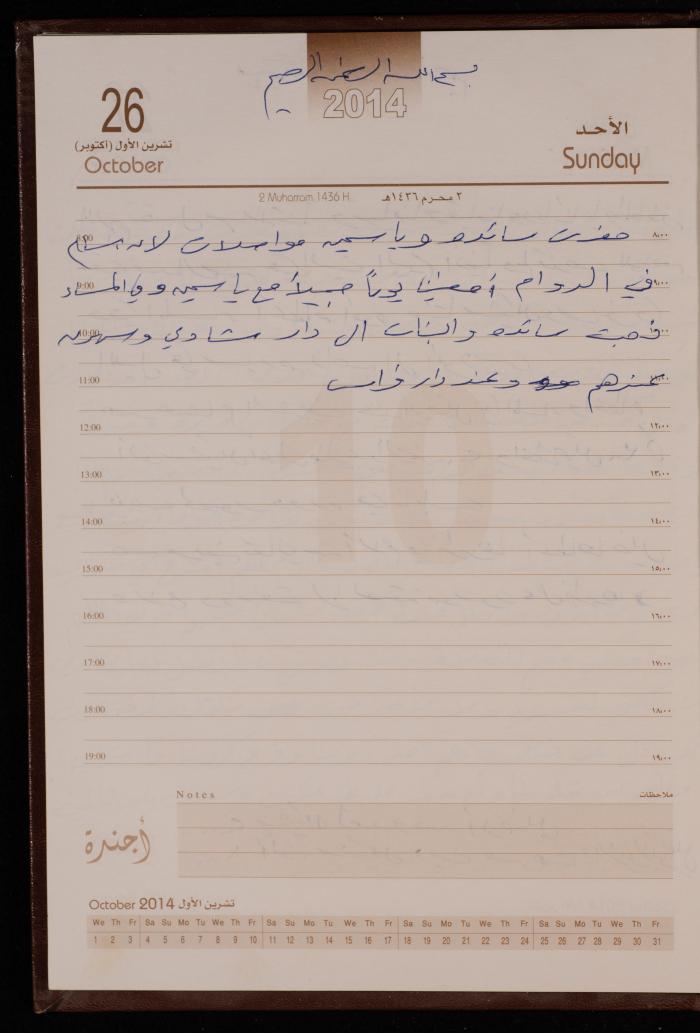 بسم الله الرحمن الرحيم
2014
26
تشرين الأول (أكتوبر)
October
الأحد
Sunday
2 Muharram 1436 H.
٢ محرم ١٤٣٦هـ
8:00 حضرت سائده وياسمين مواصلات لانه بسام ٨:٠٠
9:00 في الدوام أمضينا يوماً جميلاً مع ياسمين وفي المساء ٩:٠٠
10:00 ذهبت سائده والبنات الى دار شادي وسهرت
11:00 عندهم وعند دار فراس
10
12:00 ١٢:٠٠
13:00 ١٣:٠٠
14:00 ١٤:٠٠
15:00 ١٥:٠٠
16:00 ١٦:٠٠
17:00 ١٧:٠٠
18:00 ١٨:٠٠
19:00 ١٩:٠٠
Notes ملاحظات
أجندة
October 2014 تشرين الأول
We Th Fr Sa Su Mo Tu We Th Fr Sa Su Mo Tu We Th Fr Sa Su Mo Tu We Th Fr Sa Su Mo Tu We Th Fr
1 2 3 4 5 6 7 8 9 10 11 12 13 14 15 16 17 18 19 20 21 22 23 24 25 26 27 28 29 30 31